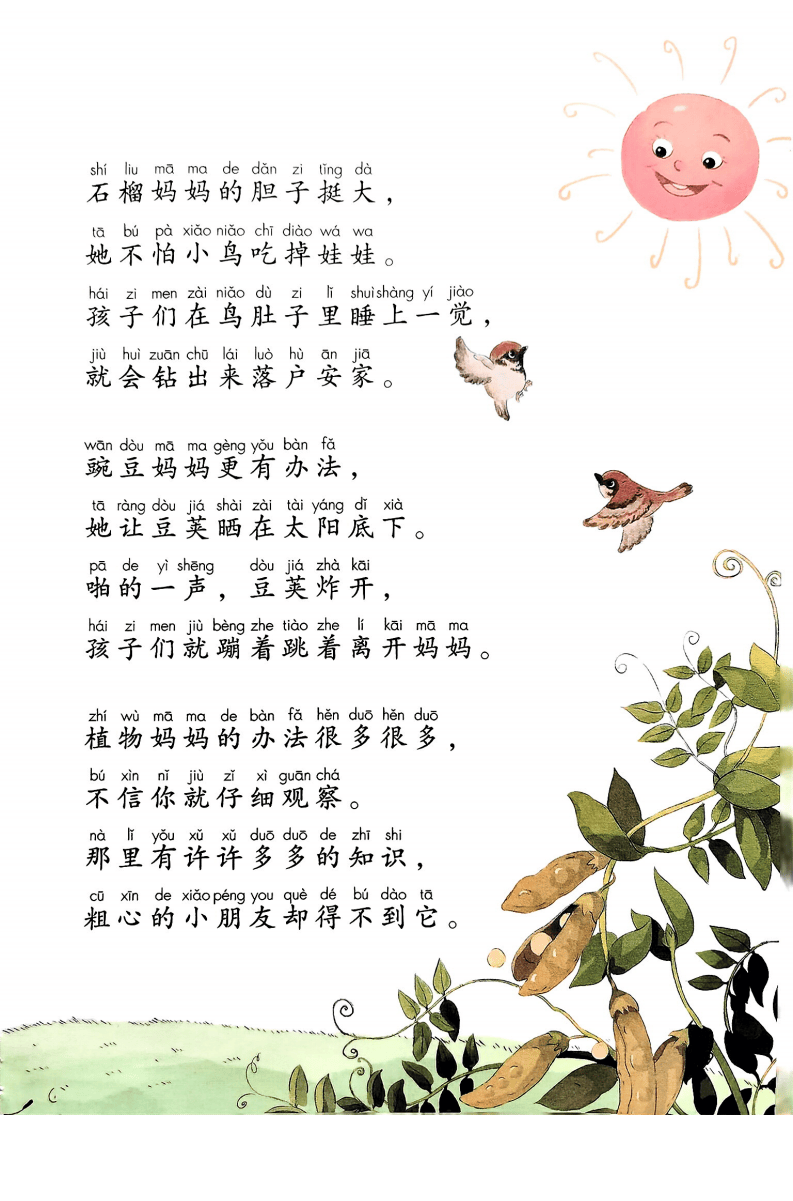 shí liu mā ma de dǎn zi tǐng dà
石榴妈妈的胆子挺大，
tā bú pà xiǎo niǎo chī diào wá wa
她不怕小鸟吃掉娃娃。
hái zi men zài niǎo dù zi lǐ shuì shàng yí jiào
孩子们在鸟肚子里睡上一觉，
jiù huì zuān chū lái luò hù ān jiā
就会钻出来落户安家。
wān dòu mā ma gèng yǒu bàn fǎ
豌豆妈妈更有办法，
tā ràng dòu jiá shài zài tài yáng dǐ xià
她让豆荚晒在太阳底下。
pā de yì shēng dòu jiá zhà kāi
啪的一声，豆荚炸开，
hái zi men jiù bèng zhe tiào zhe lí kāi mā ma
孩子们就蹦着跳着离开妈妈。
zhí wù mā ma de bàn fǎ hěn duō hěn duō
植物妈妈的办法很多很多，
bú xìn nǐ jiù zǐ xì guān chá
不信你就仔细观察。
nà lǐ yǒu xǔ xǔ duō duō de zhī shi
那里有许许多多的知识，
cū xīn de xiǎo péng you què dé bú dào tā
粗心的小朋友却得不到它。